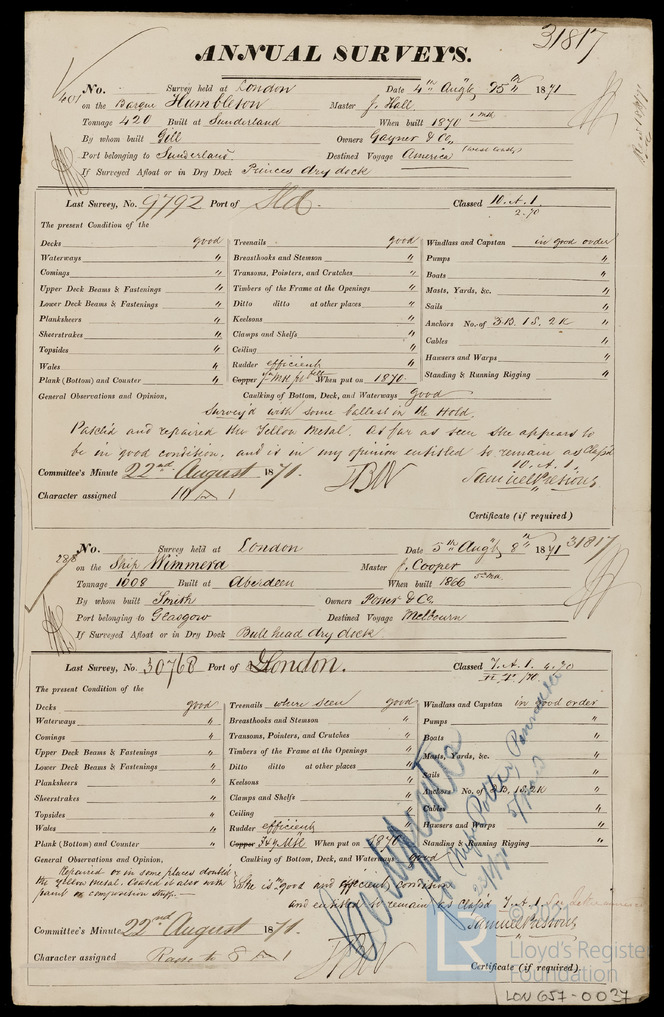 31817
ANNUAL SURVEYS.
No. 401 Survey held at London Date 4th Augt, 25th 1871
on the Barque Humbleton Master J. Hall
Tonnage 420 Built at Sunderland When built 1870 1 Mth
By whom built Gill Owners Gayner & Co,
Port belonging to Sunderland Destined Voyage America (West Coast)
If Surveyed Afloat or in Dry Dock Princes dry dock
Last Survey, No. 9792 Port of Sld. Classed 10. A. 1
2.70
The present Condition of the
Decks good Treenails good Windlass and Capstan in good order
Waterways " Breasthooks and Stemson " Pumps "
Comings " Transoms, Pointers, and Crutches " Boats "
Upper Deck Beams & Fastenings " Timbers of the Frame at the Openings " Masts, Yards, &c. "
Lower Deck Beams & Fastenings " Ditto ditto at other places " Sails "
Planksheers " Keelsons " Anchors No. of 3.B. 1S. 2K "
Sheerstrakes " Clamps and Shelfs " Cables "
Topsides " Ceiling " Hawsers and Warps "
Wales " Rudder efficient Standing & Running Rigging "
Plank (Bottom) and Counter " Copper When put on 1870
General Observations and Opinion, Caulking of Bottom, Deck, and Waterways good
Survey'd with some ballast in the Hold.
Patch'd and repaired the Yellow Metal. As far as seen she appears to
be in good condition, and is in my opinion entitled to remain as Class'd
10. A. 1,
Committee's Minute 22nd August 1871.
Character assigned 10 A 1
Certificate (if required)
31817
No. 288 Survey held at London Date 5th Augt, 8th 1871
on the Ship Wimmera Master J. Cooper
Tonnage 1008 Built at Aberdeen When built 1866 5 Mth
By whom built Smith Owners Potter & Co.
Port belonging to Glasgow Destined Voyage Melbourn
If Surveyed Afloat or in Dry Dock Bull head dry dock
Last Survey, No. 30768 Port of London. Classed 7. A. 1 4.70
The present Condition of the
Decks good Treenails where seen good Windlass and Capstan in good order
Waterways " Breasthooks and Stemson " Pumps "
Comings " Transoms, Pointers, and Crutches " Boats "
Upper Deck Beams & Fastenings " Timbers of the Frame at the Openings " Masts, Yards, &c. "
Lower Deck Beams & Fastenings " Ditto ditto at other places " Sails "
Planksheers " Keelsons " Anchors No. of 3B. 1S. 2K "
Sheerstrakes " Clamps and Shelfs " Cables "
Topsides " Ceiling " Hawsers and Warps "
Wales " Rudder efficient Standing & Running Rigging "
Plank (Bottom) and Counter " Copper When put on 1870
General Observations and Opinion, Caulking of Bottom, Deck, and Waterways good
Repaired or in some places doubled
the Yellow Metal. Coated it also with
paint or composition stuff.
She is in good and efficient condition
and entitled to remain as class'd 7. A. 1.
Committee's Minute 22nd August 1871.
Character assigned 8 A 1
Certificate (if required).
© 2020
LR
Lloyd's Register
Foundation
LON 657-0037